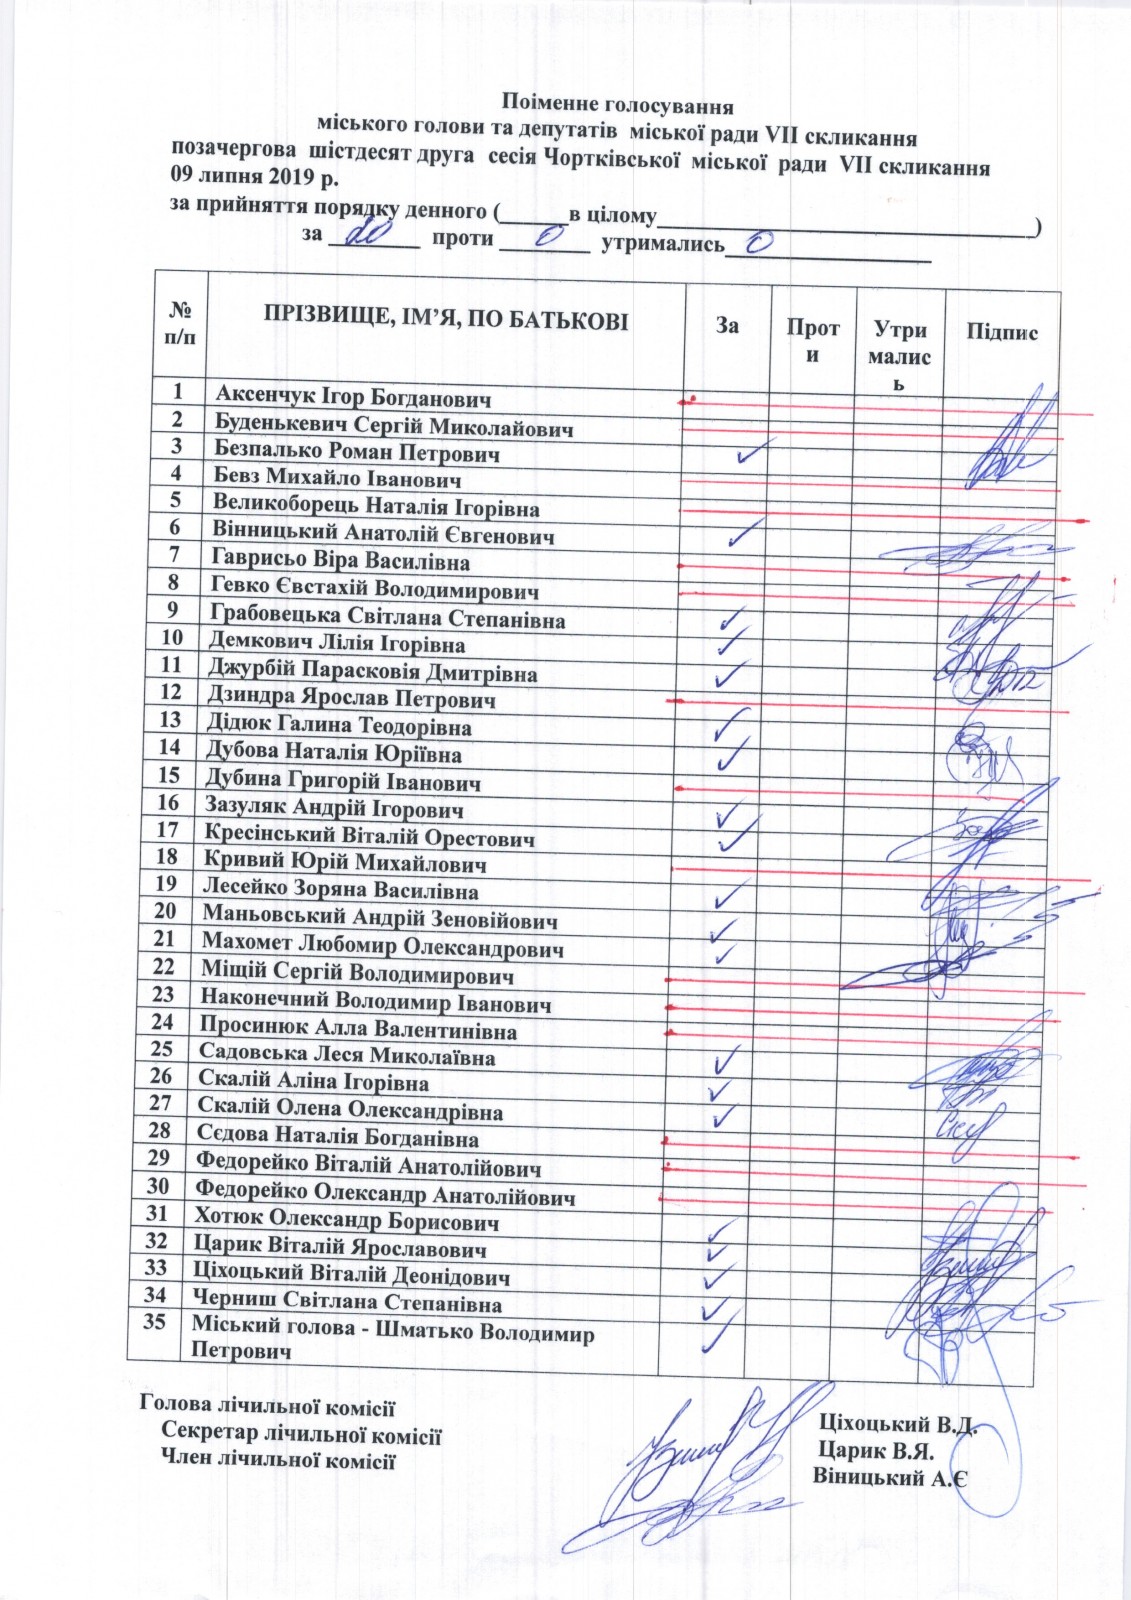 Поіменне голосування
міського голови та депутатів міської ради VII скликання
позачергова шістдесят друга сесія Чортківської міської ради VII скликання
09 липня 2019 р.
за прийняття порядку денного (______в цілому________________________________)
за 20 проти 0 утримались 0
№ п/п ПРІЗВИЩЕ, ІМ’Я, ПО БАТЬКОВІ За Проти Утримались Підпис
1 Аксенчук Ігор Богданович
2 Буденькевич Сергій Миколайович
3 Безпалько Роман Петрович ✓
4 Бевз Михайло Іванович
5 Великоборець Наталія Ігорівна
6 Вінницький Анатолій Євгенович ✓
7 Гаврисьо Віра Василівна
8 Гевко Євстахій Володимирович
9 Грабовецька Світлана Степанівна ✓
10 Демкович Лілія Ігорівна ✓
11 Джурбій Парасковія Дмитрівна ✓
12 Дзиндра Ярослав Петрович
13 Дідюк Галина Теодорівна ✓
14 Дубова Наталія Юріївна ✓
15 Дубина Григорій Іванович
16 Зазуляк Андрій Ігорович ✓
17 Кресінський Віталій Орестович ✓
18 Кривий Юрій Михайлович
19 Лесейко Зоряна Василівна ✓
20 Маньовський Андрій Зеновійович ✓
21 Махомет Любомир Олександрович ✓
22 Міщій Сергій Володимирович
23 Наконечний Володимир Іванович
24 Просинюк Алла Валентинівна
25 Садовська Леся Миколаївна ✓
26 Скалій Аліна Ігорівна ✓
27 Скалій Олена Олександрівна ✓
28 Сєдова Наталія Богданівна
29 Федорейко Віталій Анатолійович
30 Федорейко Олександр Анатолійович
31 Хотюк Олександр Борисович ✓
32 Царик Віталій Ярославович ✓
33 Ціхоцький Віталій Деонідович ✓
34 Черниш Світлана Степанівна ✓
35 Міський голова - Шматько Володимир ✓
Петрович
Голова лічильної комісії Ціхоцький В.Д.
Секретар лічильної комісії Царик В.Я.
Член лічильної комісії Віницький А.Є